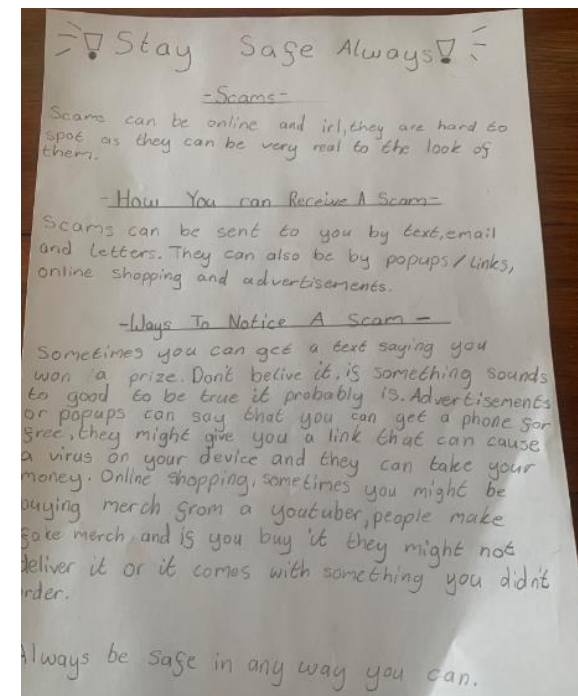 ! Stay Safe Always !
- Scams -
Scams can be online and irl, they are hard to
spot as they can be very real to the look of
them.
- How You can Receive A Scam -
Scams can be sent to you by text, email
and letters. They can also be by popups / links,
online shopping and advertisements.
- Ways To Notice A Scam -
Sometimes you can get a text saying you
won a prize. Don't belive it, if something sounds
to good to be true it probably is. Advertisements
or popups can say that you can get a phone for
free, they might give you a link that can cause
a virus on your device and they can take your
money. Online shopping, sometimes you might be
buying merch from a youtuber, people make
fake merch and if you buy it they might not
deliver it or it comes with something you didn't
order.
Always be safe in any way you can.